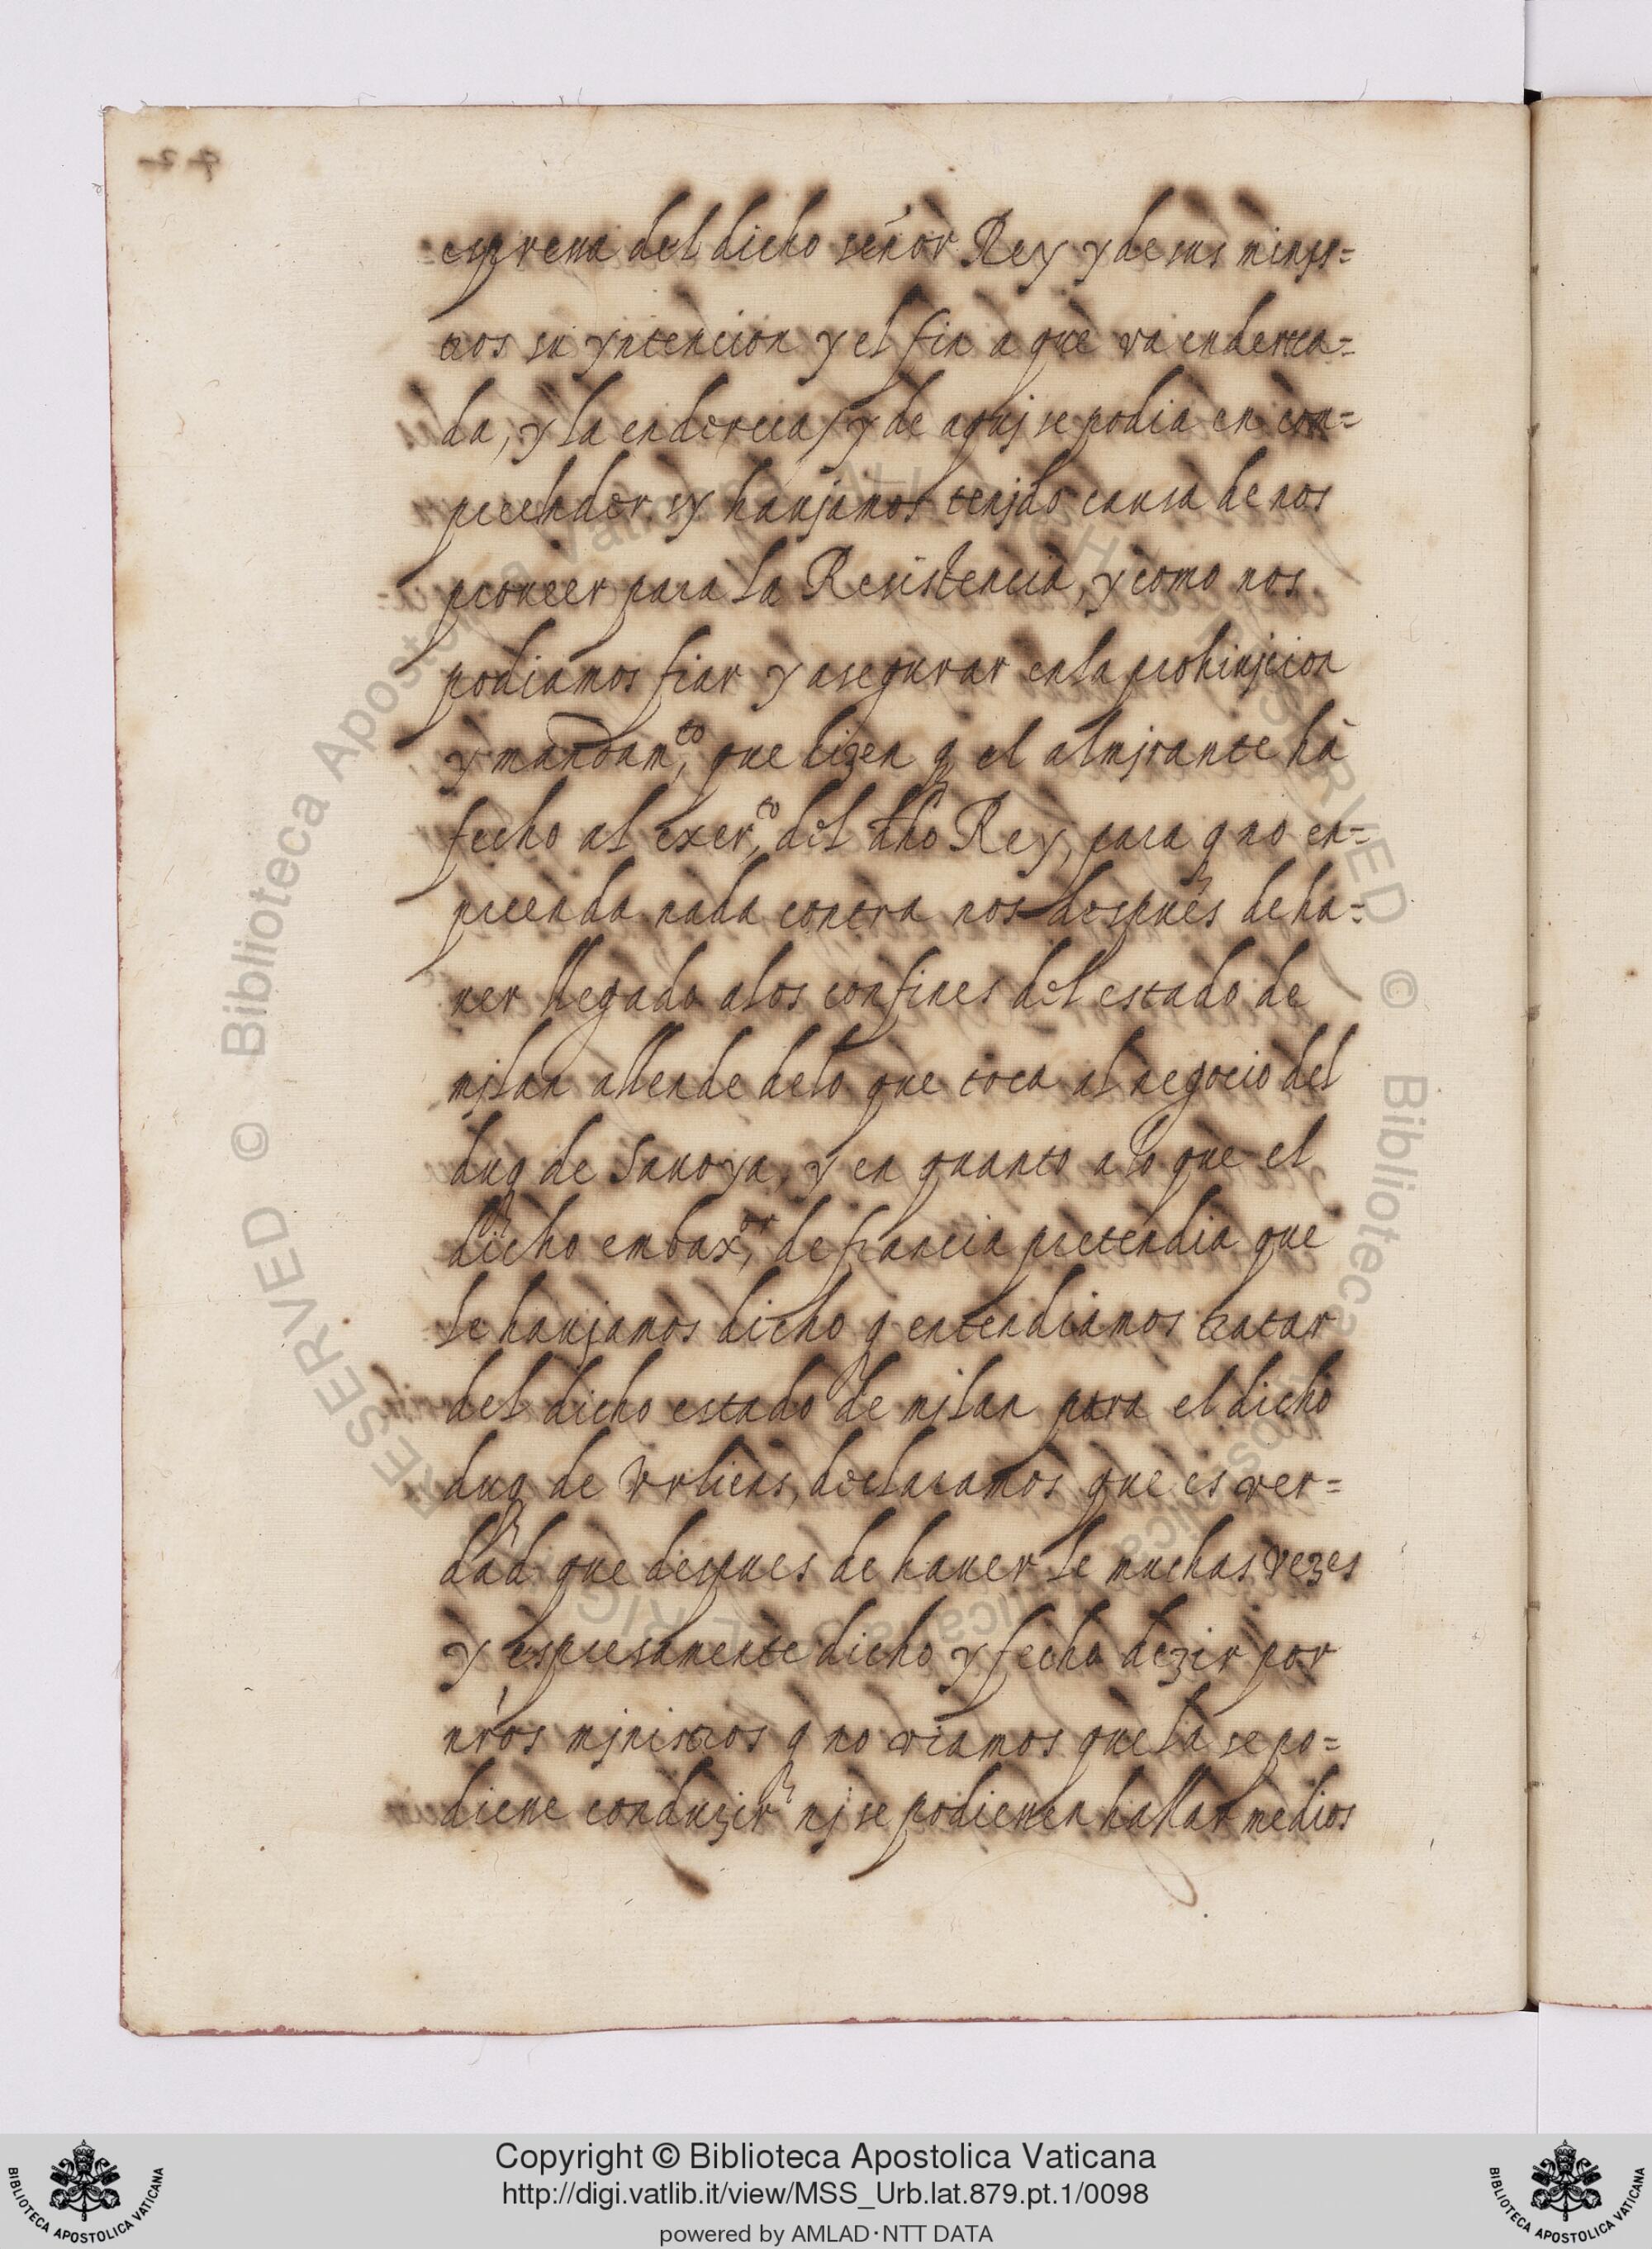 espresa del dicho señor Rey y de sus minjs=
tros su yntencion y el fin a que va endereca=
da, y la endereca, y de aquj se podia en com=
prehender, sy haujamos tenjdo causa de nos
proueer para la Resistencia, y como nos
podiamos fiar y asegurar en la prohiujcion
y mandamto, que dizen q el almjrante ha
fecho al exerto, del dho Rey, para q no en=
prenda nada contra nos despues de ha=
uer llegado a los confines del estado de
mjlan allende de lo que toca al negocio del
duq de Sauoya, y en quanto a lo que el
dicho embaxor, de francia pretendia que
le haujamos dicho q entendiamos tratar
del dicho estado de mjlan para el dicho
duq de Vrliens, declaramos que es ver=
dad que despues de hauer le muchas vezes
y espresamente dicho y fecho dezir por
nros mjnistros q no viamos que la se po=
diese conduzir nj se podiesen hallar medios
RESERVED © Biblioteca Apostolica Vaticana ALL RIGHTS RESERVED © Biblioteca Apostolica Vaticana ALL RIGHTS
Copyright © Biblioteca Apostolica Vaticana
http://digi.vatlib.it/view/MSS_Urb.lat.879.pt.1/0098
powered by AMLAD·NTT DATA
BIBLIOTECA APOSTOLICA VATICANA
BIBLIOTECA APOSTOLICA VATICANA